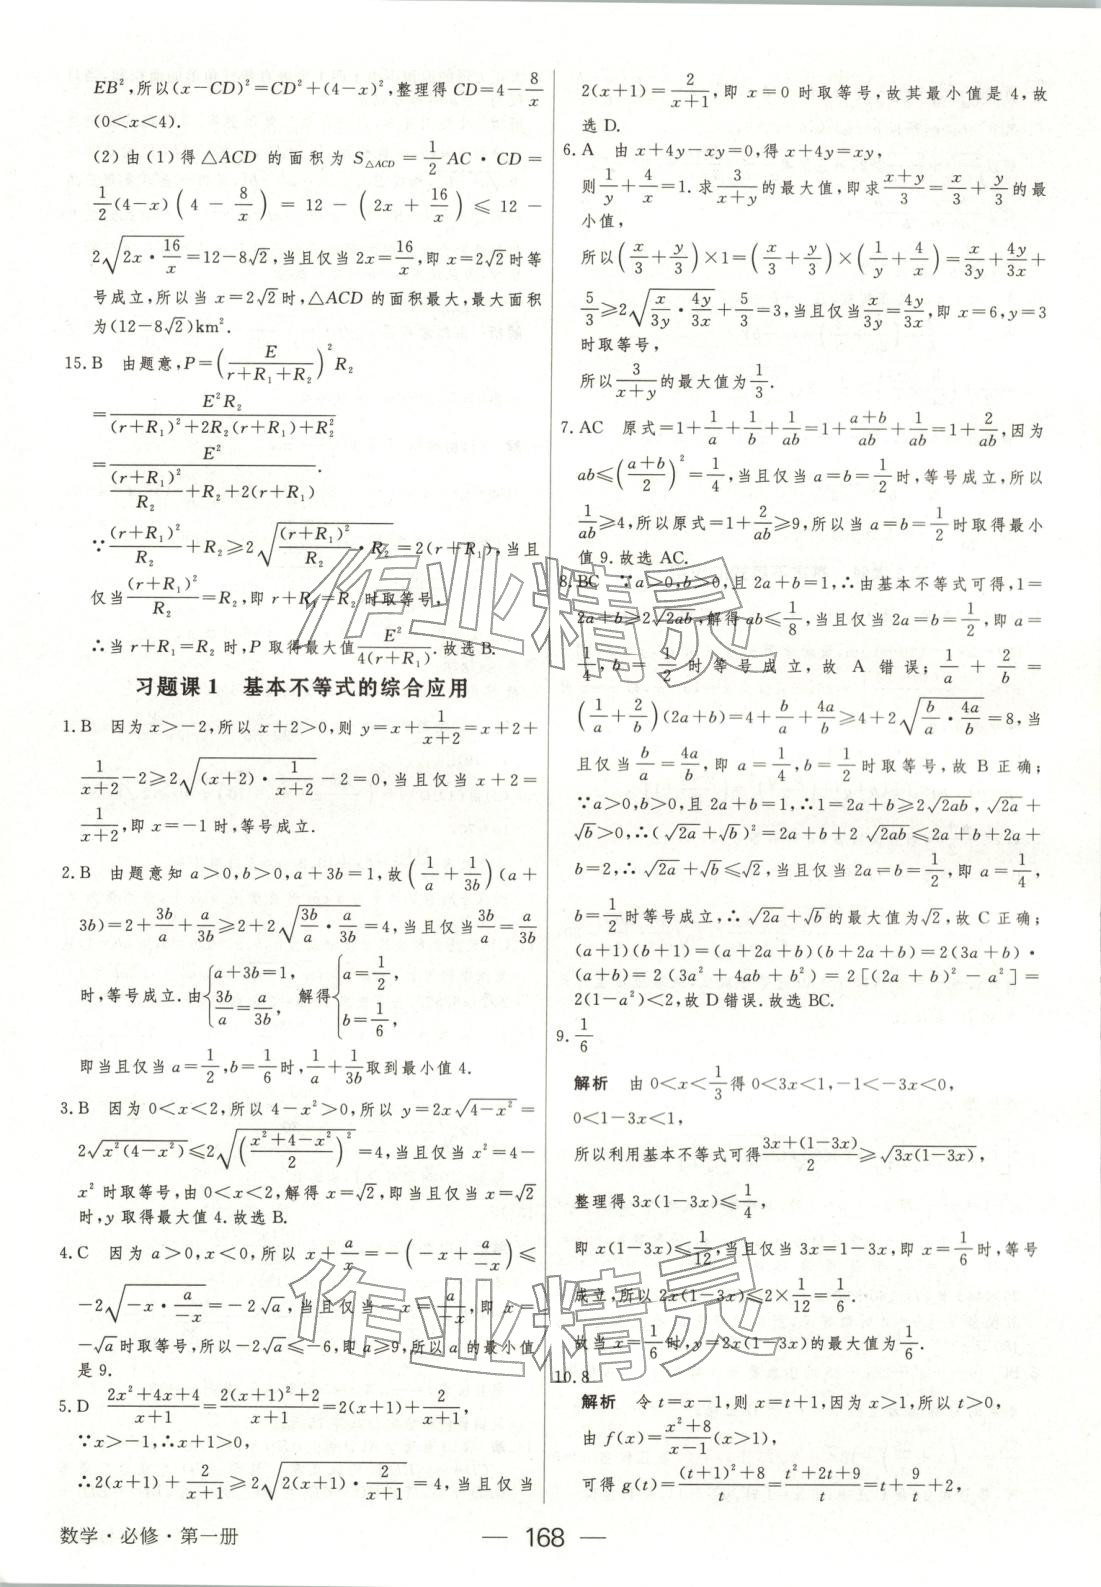 EB²,所以(x－CD)²＝CD²＋(4－x)²,整理得 CD＝4－8/x
(0＜x＜4).
(2)由(1)得△ACD 的面积为 S△ACD＝1/2 AC·CD＝
1/2(4－x)(4－8/x)＝12－(2x＋16/x)≤12－
2√(2x·16/x)＝12－8√2,当且仅当 2x＝16/x,即 x＝2√2时等
号成立,所以当 x＝2√2时,△ACD 的面积最大,最大面积
为(12－8√2)km².
15.B 由题意,P＝(E/(r＋R₁＋R₂))²R₂
＝E²R₂/((r＋R₁)²＋2R₂(r＋R₁)＋R₂²)
＝E²/((r＋R₁)²/R₂＋R₂＋2(r＋R₁)).
∵(r＋R₁)²/R₂＋R₂≥2√((r＋R₁)²/R₂·R₂)＝2(r＋R₁),当且
仅当(r＋R₁)²/R₂＝R₂,即 r＋R₁＝R₂ 时取等号,
∴当 r＋R₁＝R₂ 时,P 取得最大值E²/4(r＋R₁).故选 B.
习题课 1 基本不等式的综合应用
1.B 因为 x＞－2,所以 x＋2＞0,则 y＝x＋1/(x＋2)＝x＋2＋
1/(x＋2)－2≥2√((x＋2)·1/(x＋2))－2＝0,当且仅当 x＋2＝
1/(x＋2),即 x＝－1 时,等号成立.
2.B 由题意知 a＞0,b＞0,a＋3b＝1,故(1/a＋1/3b)(a＋
3b)＝2＋3b/a＋a/3b≥2＋2√(3b/a·a/3b)＝4,当且仅当3b/a＝a/3b
时,等号成立.由{a＋3b＝1, 3b/a＝a/3b, 解得{a＝1/2, b＝1/6,
即当且仅当 a＝1/2,b＝1/6时,1/a＋1/3b取到最小值 4.
3.B 因为 0＜x＜2,所以 4－x²＞0,所以 y＝2x√(4－x²)＝
2√(x²(4－x²))≤2√(((x²＋4－x²)/2)²)＝4,当且仅当 x²＝4－
x² 时取等号,由 0＜x＜2,解得 x＝√2,即当且仅当 x＝√2
时,y 取得最大值 4.故选 B.
4.C 因为 a＞0,x＜0,所以 x＋a/x＝－(－x＋a/－x)≤
－2√(－x·a/－x)＝－2√a,当且仅当－x＝a/－x,即 x＝
－√a时取等号,所以－2√a≤－6,即 a≥9,所以 a 的最小值
是 9.
5.D (2x²＋4x＋4)/(x＋1)＝(2(x＋1)²＋2)/(x＋1)＝2(x＋1)＋2/(x＋1),
∵x＞－1,∴x＋1＞0,
∴2(x＋1)＋2/(x＋1)≥2√(2(x＋1)·2/(x＋1))＝4,当且仅当
2(x＋1)＝2/(x＋1),即 x＝0 时取等号,故其最小值是 4,故
选 D.
6.A 由 x＋4y－xy＝0,得 x＋4y＝xy,
则1/y＋4/x＝1.求3/(x＋y)的最大值,即求(x＋y)/3＝x/3＋y/3的最
小值,
所以(x/3＋y/3)×1＝(x/3＋y/3)×(1/y＋4/x)＝x/3y＋4y/3x＋
5/3≥2√(x/3y·4y/3x)＋5/3＝3,当且仅当x/3y＝4y/3x,即 x＝6,y＝3
时取等号,
所以3/(x＋y)的最大值为1/3.
7.AC 原式＝1＋1/a＋1/b＋1/ab＝1＋(a＋b)/ab＋1/ab＝1＋2/ab,因为
ab≤((a＋b)/2)²＝1/4,当且仅当 a＝b＝1/2时,等号成立,所以
1/ab≥4,所以原式＝1＋2/ab≥9,所以当 a＝b＝1/2时取得最小
值 9.故选 AC.
8.BC ∵a＞0,b＞0,且 2a＋b＝1,∴由基本不等式可得,1＝
2a＋b≥2√(2ab),解得 ab≤1/8,当且仅当 2a＝b＝1/2,即 a＝
1/4,b＝1/2时等号成立,故 A 错误;1/a＋2/b＝
(1/a＋2/b)(2a＋b)＝4＋b/a＋4a/b≥4＋2√(b/a·4a/b)＝8,当
且仅当b/a＝4a/b,即 a＝1/4,b＝1/2时取等号,故 B 正确;
∵a＞0,b＞0,且 2a＋b＝1,∴1＝2a＋b≥2√(2ab),√(2a)＋
√b＞0,∴(√(2a)＋√b)²＝2a＋b＋2√(2ab)≤2a＋b＋2a＋
b＝2,∴√(2a)＋√b≤√2,当且仅当 2a＝b＝1/2,即 a＝1/4,
b＝1/2时等号成立,∴√(2a)＋√b的最大值为√2,故 C 正确;
(a＋1)(b＋1)＝(a＋2a＋b)(b＋2a＋b)＝2(3a＋b)·
(a＋b)＝2(3a²＋4ab＋b²)＝2[(2a＋b)²－a²]＝
2(1－a²)＜2,故 D 错误.故选 BC.
9.1/6
解析 由 0＜x＜1/3得 0＜3x＜1,－1＜－3x＜0,
0＜1－3x＜1,
所以利用基本不等式可得(3x＋(1－3x))/2≥√(3x(1－3x)),
整理得 3x(1－3x)≤1/4,
即 x(1－3x)≤1/12,当且仅当 3x＝1－3x,即 x＝1/6时,等号
成立,所以 2x(1－3x)≤2×1/12＝1/6.
故当 x＝1/6时,y＝2x(1－3x)的最大值为1/6.
10.8
解析 令 t＝x－1,则 x＝t＋1,因为 x＞1,所以 t＞0,
由 f(x)＝(x²＋8)/(x－1)(x＞1),
可得 g(t)＝((t＋1)²＋8)/t＝(t²＋2t＋9)/t＝t＋9/t＋2,
数学·必修·第一册
— 168 —
作业精灵
作业精灵